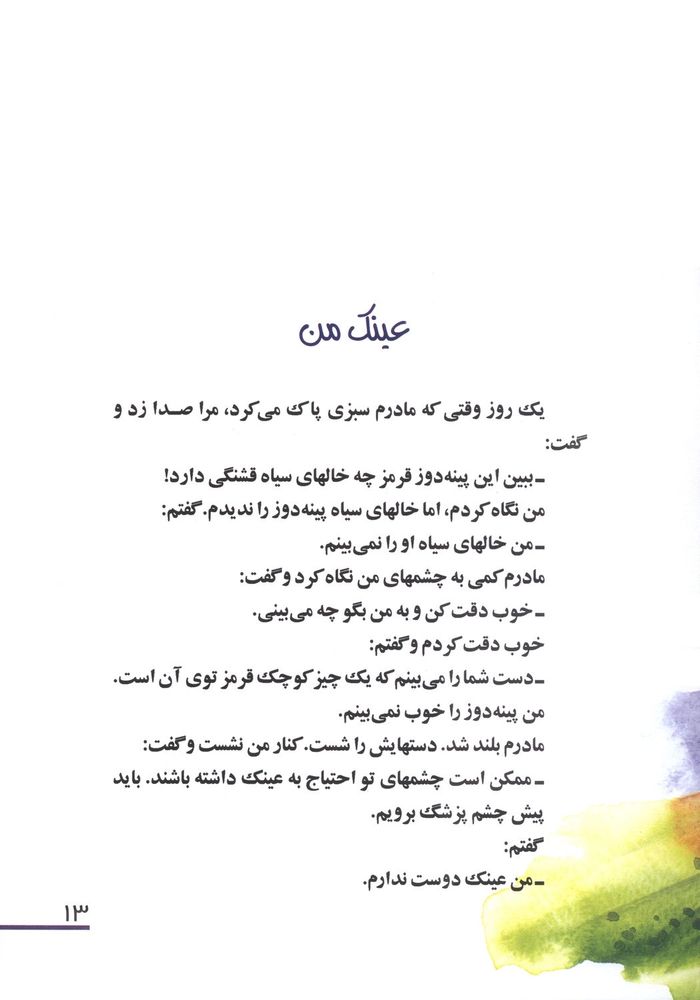 عینک من
یک روز وقتی که مادرم سبزی پاک می‌کرد، مرا صدا زد و
گفت:
ـ ببین این پینه‌دوز قرمز چه خالهای سیاه قشنگی دارد!
من نگاه کردم، اما خالهای سیاه پینه‌دوز را ندیدم. گفتم:
ـ من خالهای سیاه او را نمی‌بینم.
مادرم کمی به چشمهای من نگاه کرد و گفت:
ـ خوب دقت کن و به من بگو چه می‌بینی.
خوب دقت کردم و گفتم:
ـ دست شما را می‌بینم که یک چیز کوچک قرمز توی آن است.
من پینه‌دوز را خوب نمی‌بینم.
مادرم بلند شد. دستهایش را شست. کنار من نشست و گفت:
ـ ممکن است چشمهای تو احتیاج به عینک داشته باشند. باید
پیش چشم پزشگ برویم.
گفتم:
ـ من عینک دوست ندارم.
۱۳